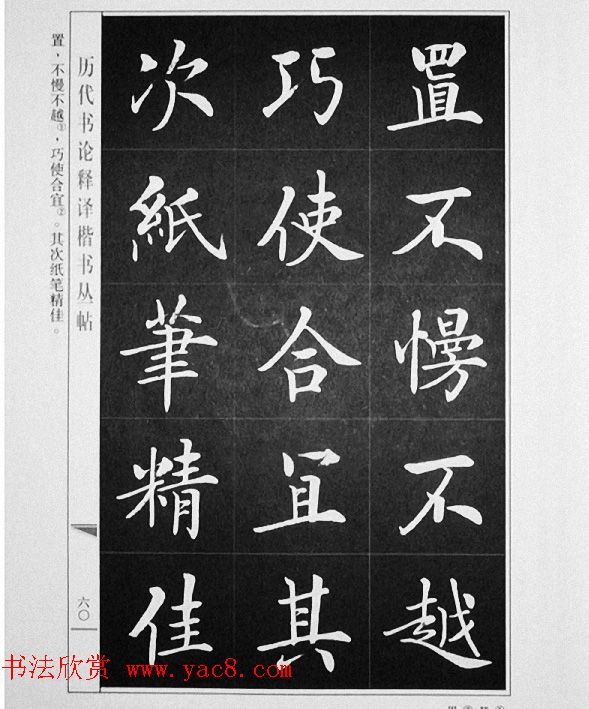 置不慢不越
巧使合宜其
次紙筆精佳
历代书论释译楷书丛帖
六〇
置，不慢不越①，巧使合宜②。其次纸笔精佳。
书法欣赏 www.yac8.com